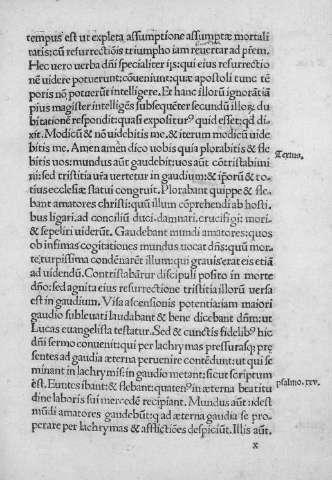 tempus est ut expleta assumptione assumptæ mortali
tatis: cū resurrectiōis triumpho iam reuertar ad pr̄em.
Hec uero uerba dn̄i specialiter ijs: qui eius resurrectio
nē uidere potuerunt: cōueniunt: quæ apostoli tunc tē
poris nō potuerūt intelligere. Et hanc illorū ignorātiā
pius magister intelligēs subsequēter secundū illoꝝ du
bitationē respondit: quasi exposituꝰ quid esset: qd di
xit. Modicū & nō uidebitis me. & iterum modicū uide
bitis me. Amen amen dico uobis quia plorabitis & fle
bitis uos: mundus aūt gaudebit: uos aūt cōtristabimi
ni: sed tristitia ur̄a uertetur in gaudium: & ipsorū & to
tius ecclesiæ statui congruit. Plorabant quippe & fle
bant amatores christi: quū illum cōprehendi ab hosti
bus ligari, ad conciliū duci. damnari. crucifigi: mori:
& sepeliri uiderūt. Gaudebant mundi amatores: quos
ob infimas cogitationes mundus uocat dn̄s: quū mor
te turpissima condēnarēt illum: qui grauis erat eis etiā
ad uidendū. Contristabātur discipuli posito in morte
dn̄o: sed agnita eius resurrectione tristitia illorū uersa
est in gaudium. Visa ascensionis potentia: iam maiori
gaudio subleuati laudabant & bene dicebant dn̄m: ut
Lucas euangelista testatur. Sed & cunctis fidelibꝰ hic
dn̄i sermo conuenit: qui per lachrymas pressurasqꝫ prę
sentes ad gaudia æterna peruenire contēdunt: ut qui se
minant in lachrymis: in gaudio metant: sicut scriptum
ēst. Euntes ibant: & flebant: quatenꝰ in æterna beatitu
dine laboris sui mercedē recipiant. Mundus aūt: idest
mūdi amatores gaudebūt: q ad æterna gaudia se pro-
perare per lachrymas & afflictiōes despiciūt. Illis aūt.
Textus.
psalmo. xxv.
x